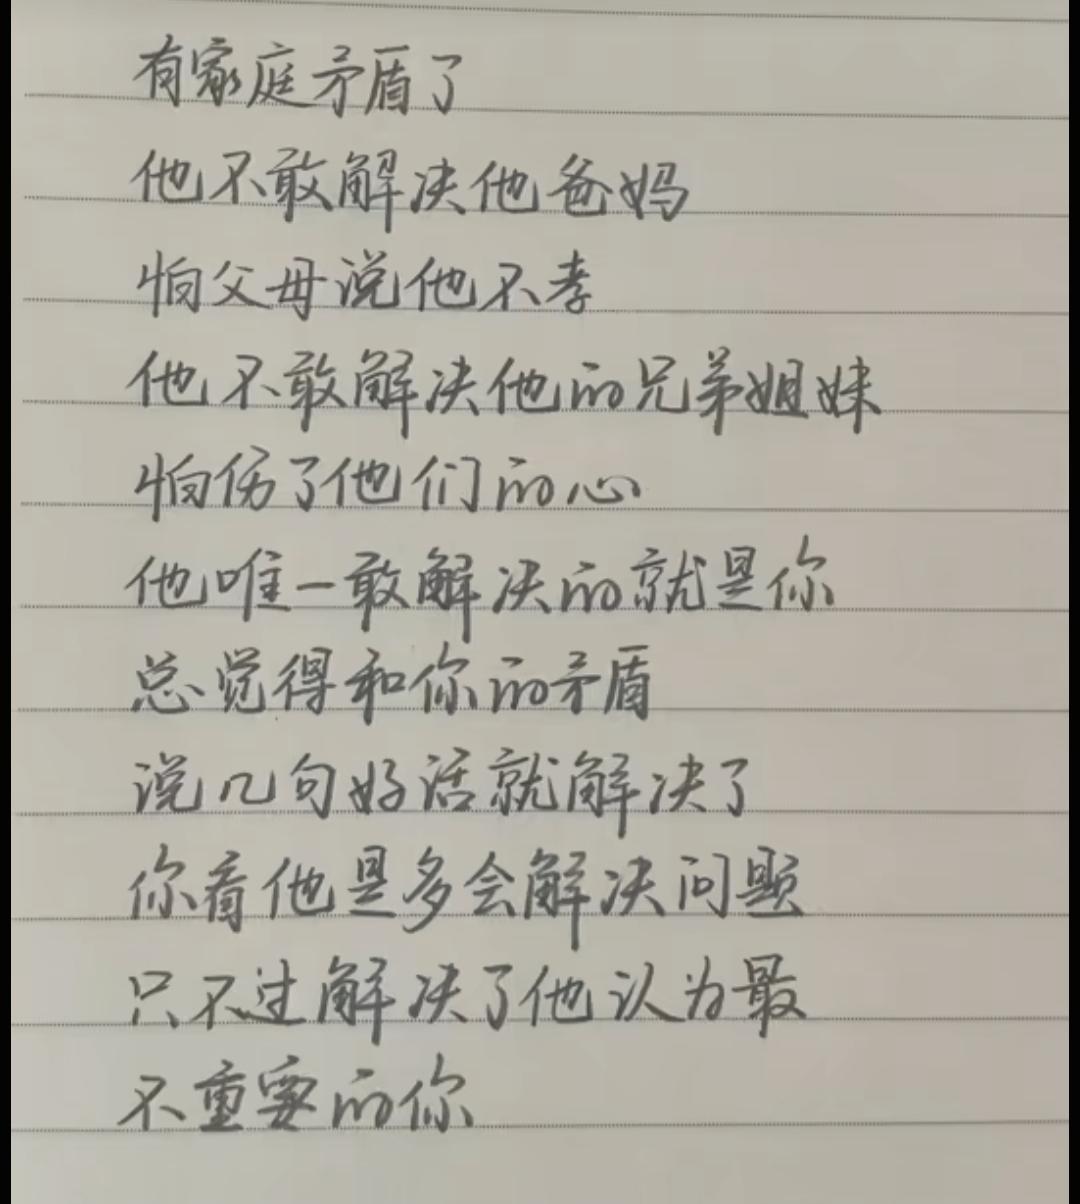 有家庭矛盾了
他不敢解决他爸妈
怕父母说他不孝
他不敢解决他的兄弟姐妹
怕伤了他们的心
他唯一敢解决的就是你
总觉得和你的矛盾
说几句好话就解决了
你看他是多会解决问题
只不过解决了他认为最
不重要的你